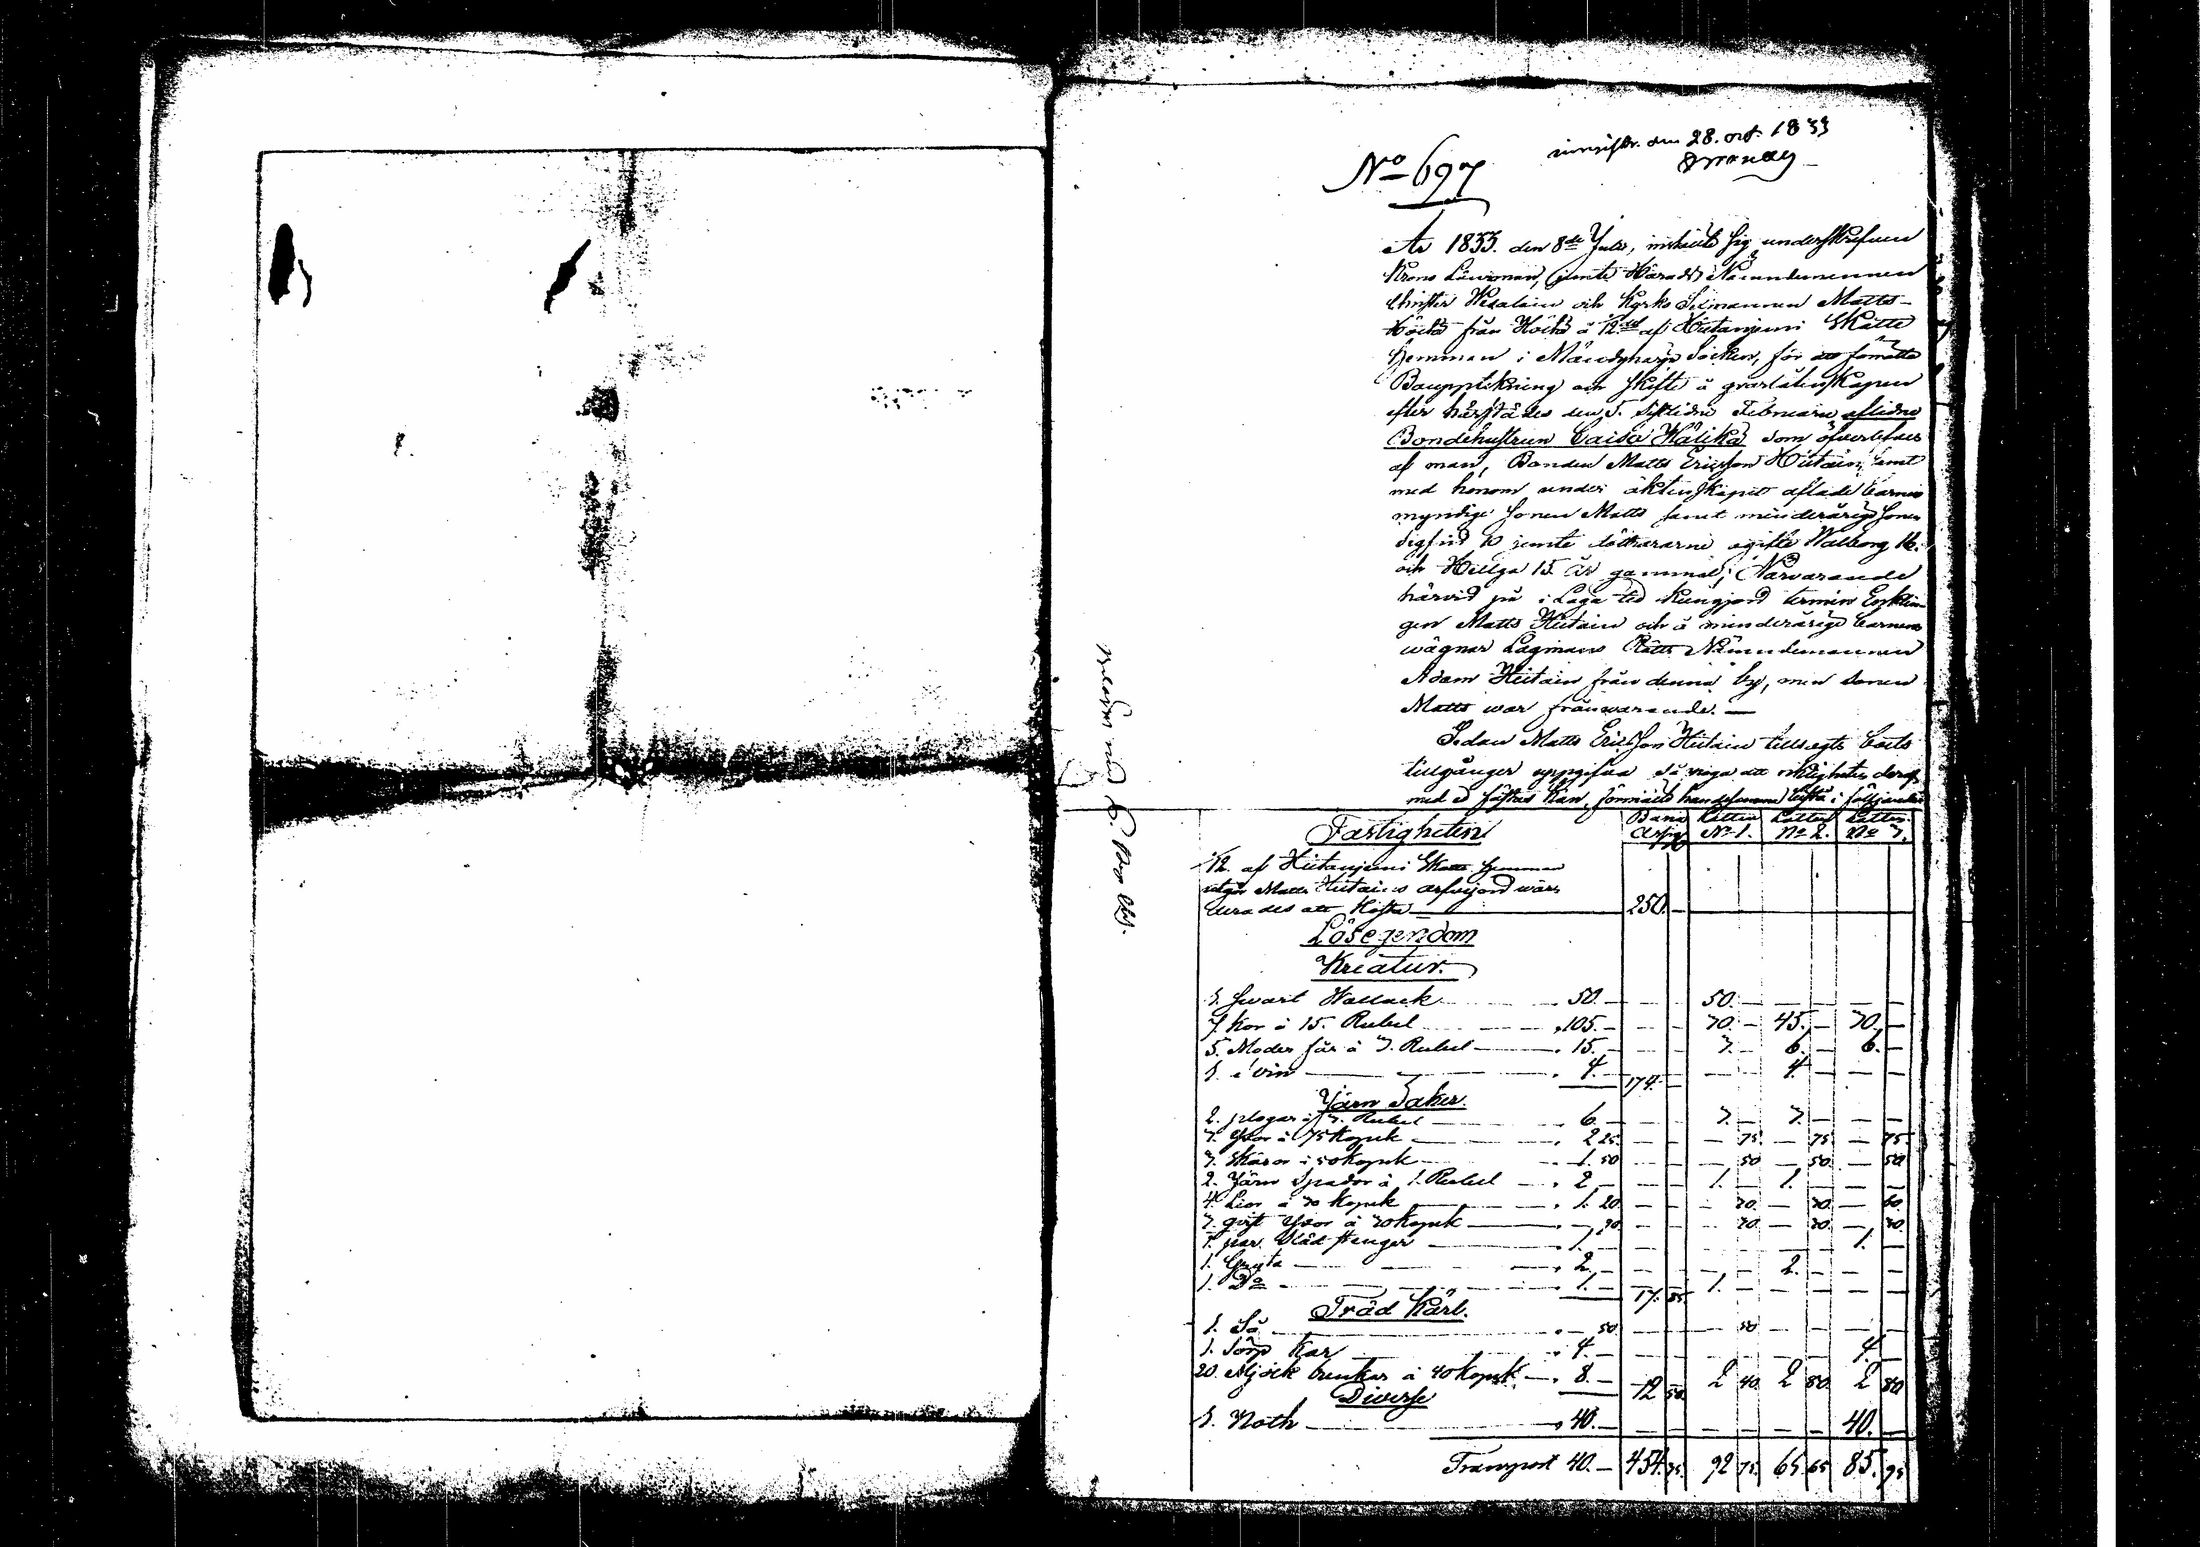 den 28. oct. 1833
No 697
År 1833. den 8de Julii, instälte sig underskrefven
Krono Länsman, jemte Härads Nämndemannen
Christer Wesalain och Kyrko Sexmannen Matts
Höltä från Höltä å 1/12del af Hiitanjemi Skatte
Hemman i Mäntyharju Socken, för att förrätta
Bouppteckning och skifte å qvarlåtenskapen
efter härstädes den 5. sistledne Februarii aflidne
Bondehustrun Caisa Hälikä som öfverlefves
af man, Bonden Matts Ericsson Hiitain, samt
med honom under äktenskapet aflade barnen
myndige Sonen Matts samt minderårige Sonen
Sigfrid 10 jemte döttrarne ogifte Walborg 16.
och Hellga 15 år gammal; Närvarande
härvid på i Laga tid kungjord termin Enklin-
gen Matts Hiitain och å minderårige barnens
wägnar Lagmans Rätts Nämndemannen
Adam Hiitain från denna by, men Sonen
Matts war frånvarande. —
Sedan Matts Ericsson Hiitain tillsagts boets
tillgångar uppgifva så noga att riktigheten deraf
med ed fästas kan, förmälte han desamma bestå i följande
Fastigheten
Lotten No 1. Lotten No 2. Lotten No 3.
1/12 af Hiitanjemi Skatte Hemman
utgör Matts Hiitains arfvejord wär-
derades att kosta — 250. —
Lösegendom
Kreatur.
1. Svart Wallack 50. — 50. —
7. Kor à 15. Rubel 105. — 30. — 45. — 30. —
5. Moder får à 3. Rubel 15. — 3. — 6. — 6. —
1. Svin 4. — 4. — 174. —
Järn Saker.
2. plogar à 3. Rubel 6. — 3. — 3. —
3. Yxor à 75 Kopek 2 25. 75. 75. 75.
3. Skäror à 50 Kopek 1. 50 50 50 50
2. Järn Spador à 1. Rubel 2 — 1. — 1. —
4. Lior à 30 Kopek 1. 20 30. 30. 60
3. Yxor à 30 Kopek — 90 30. 30. 30
1. par stänger 1. — 1. —
1. Gryta 2. — 2. —
1. Do 1. — 1. — 17. 85.
Träd Kärl.
1. Så — 50 50
1. Kar 4. — 4. —
20. Mjölk bunkar à 40 Kopek 8. — 12 50. 2 40 2 80 2 80
Diverse
1. Noth 40. — 40. —
Transport 40. — 454. 35. 92 75. 65. 65 85. 95